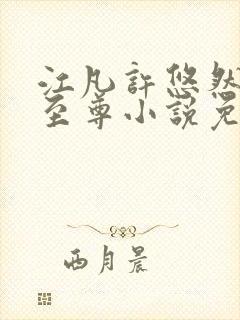 江凡許悠然
至尊小說免
西月晨